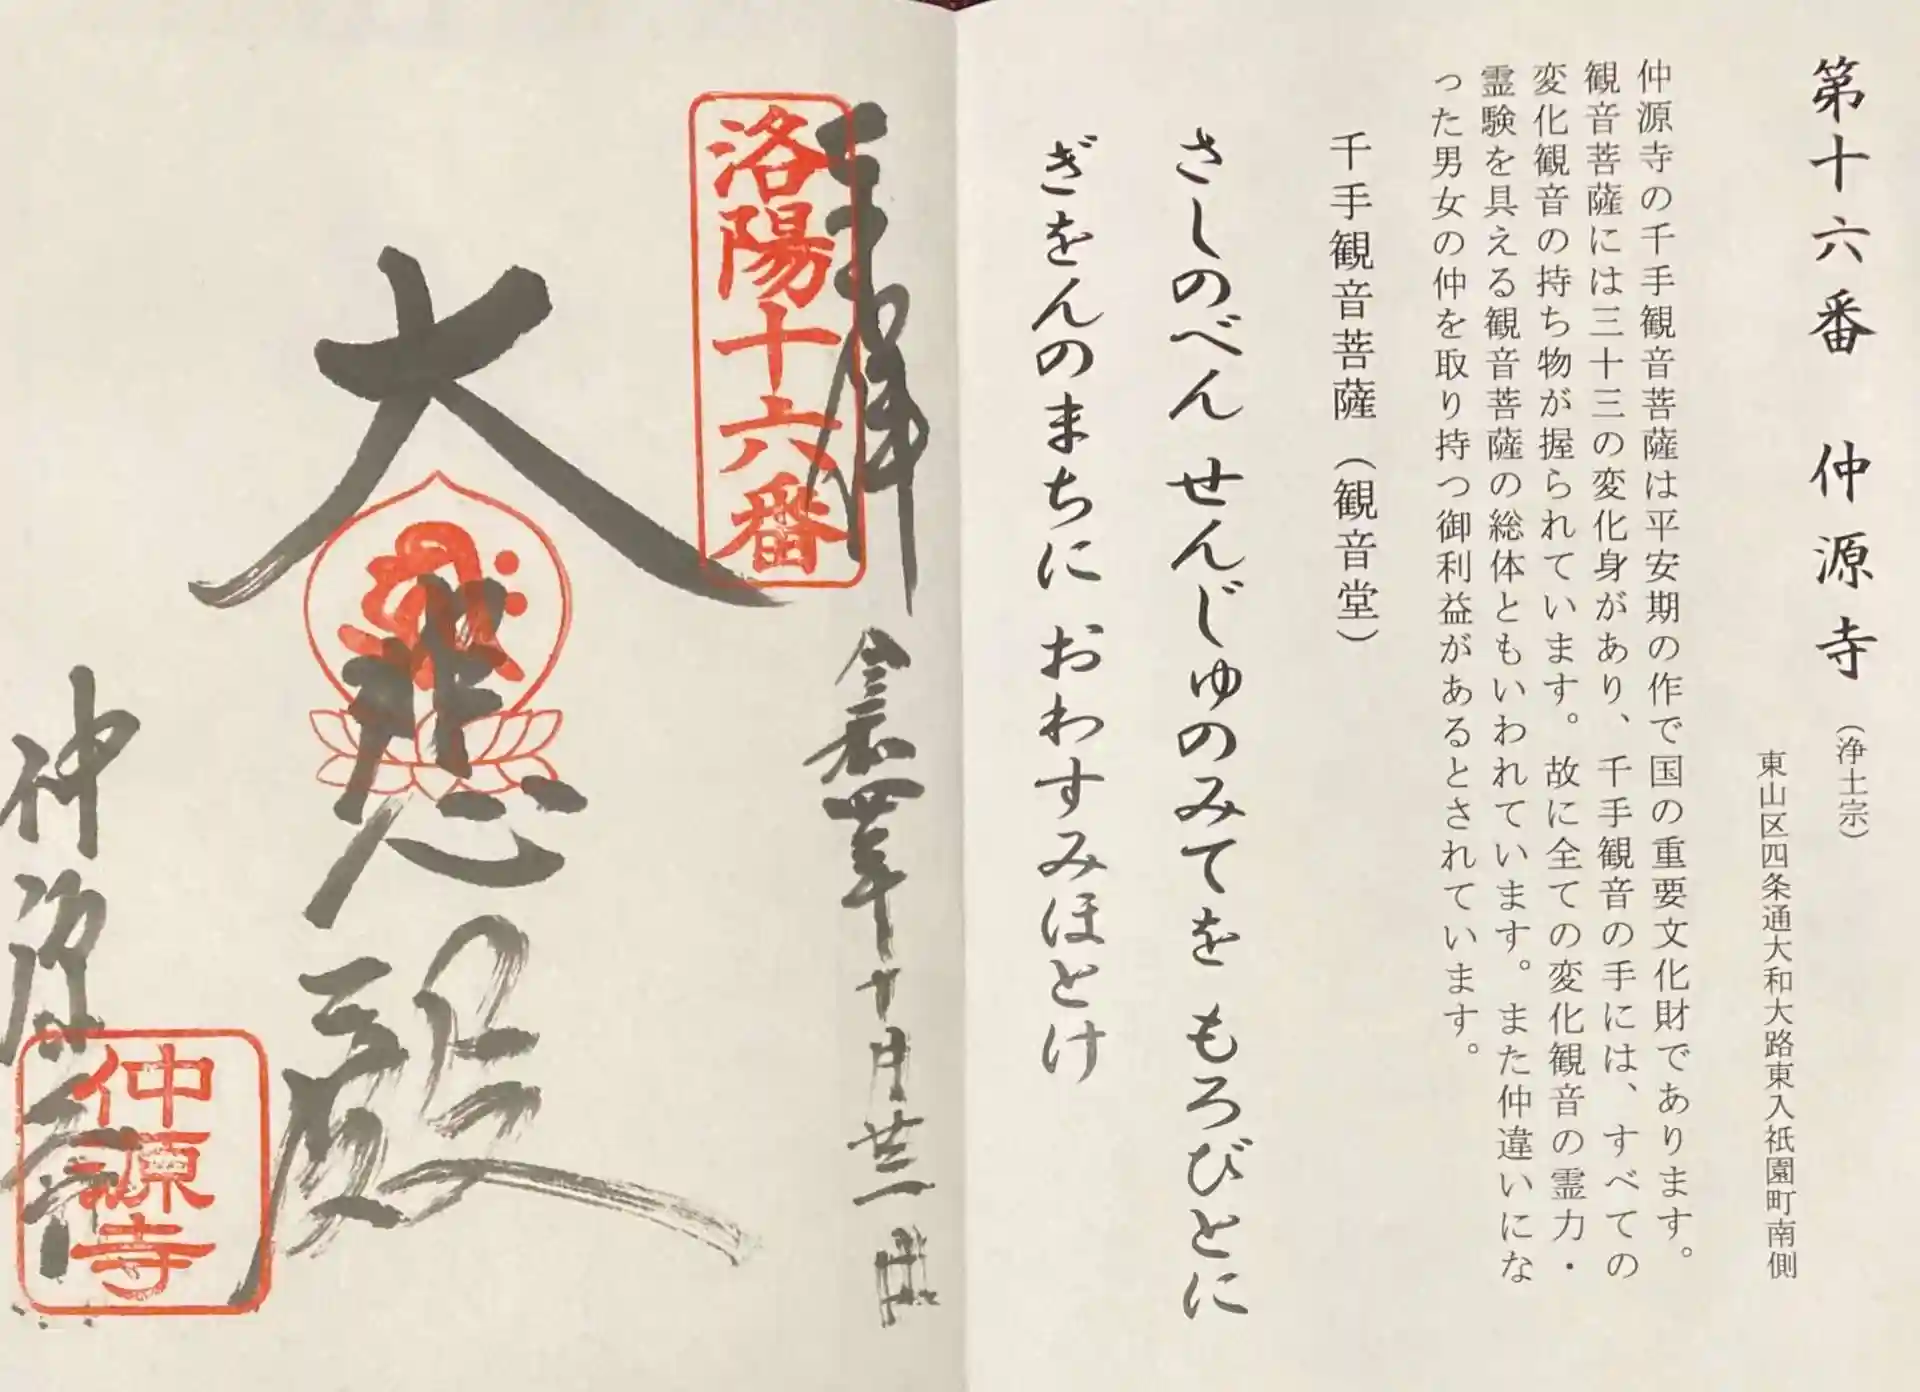 第十六番　仲源寺（浄土宗）
東山区四条通大和大路東入祇園町南側
仲源寺の千手観音菩薩は平安期の作で国の重要文化財であります。
観音菩薩には三十三の変化身があり、千手観音の手には、すべての
変化観音の持ち物が握られています。故に全ての変化観音の霊力・
霊験を具える観音菩薩の総体ともいわれています。また仲違いにな
った男女の仲を取り持つ御利益があるとされています。
千手観音菩薩（観音堂）
さしのべん せんじゅのみてを もろびとに
ぎをんのまちに おわすみほとけ
奉拝
令和四年十月廿一日
洛陽十六番
大悲殿
仲源寺
仲源寺